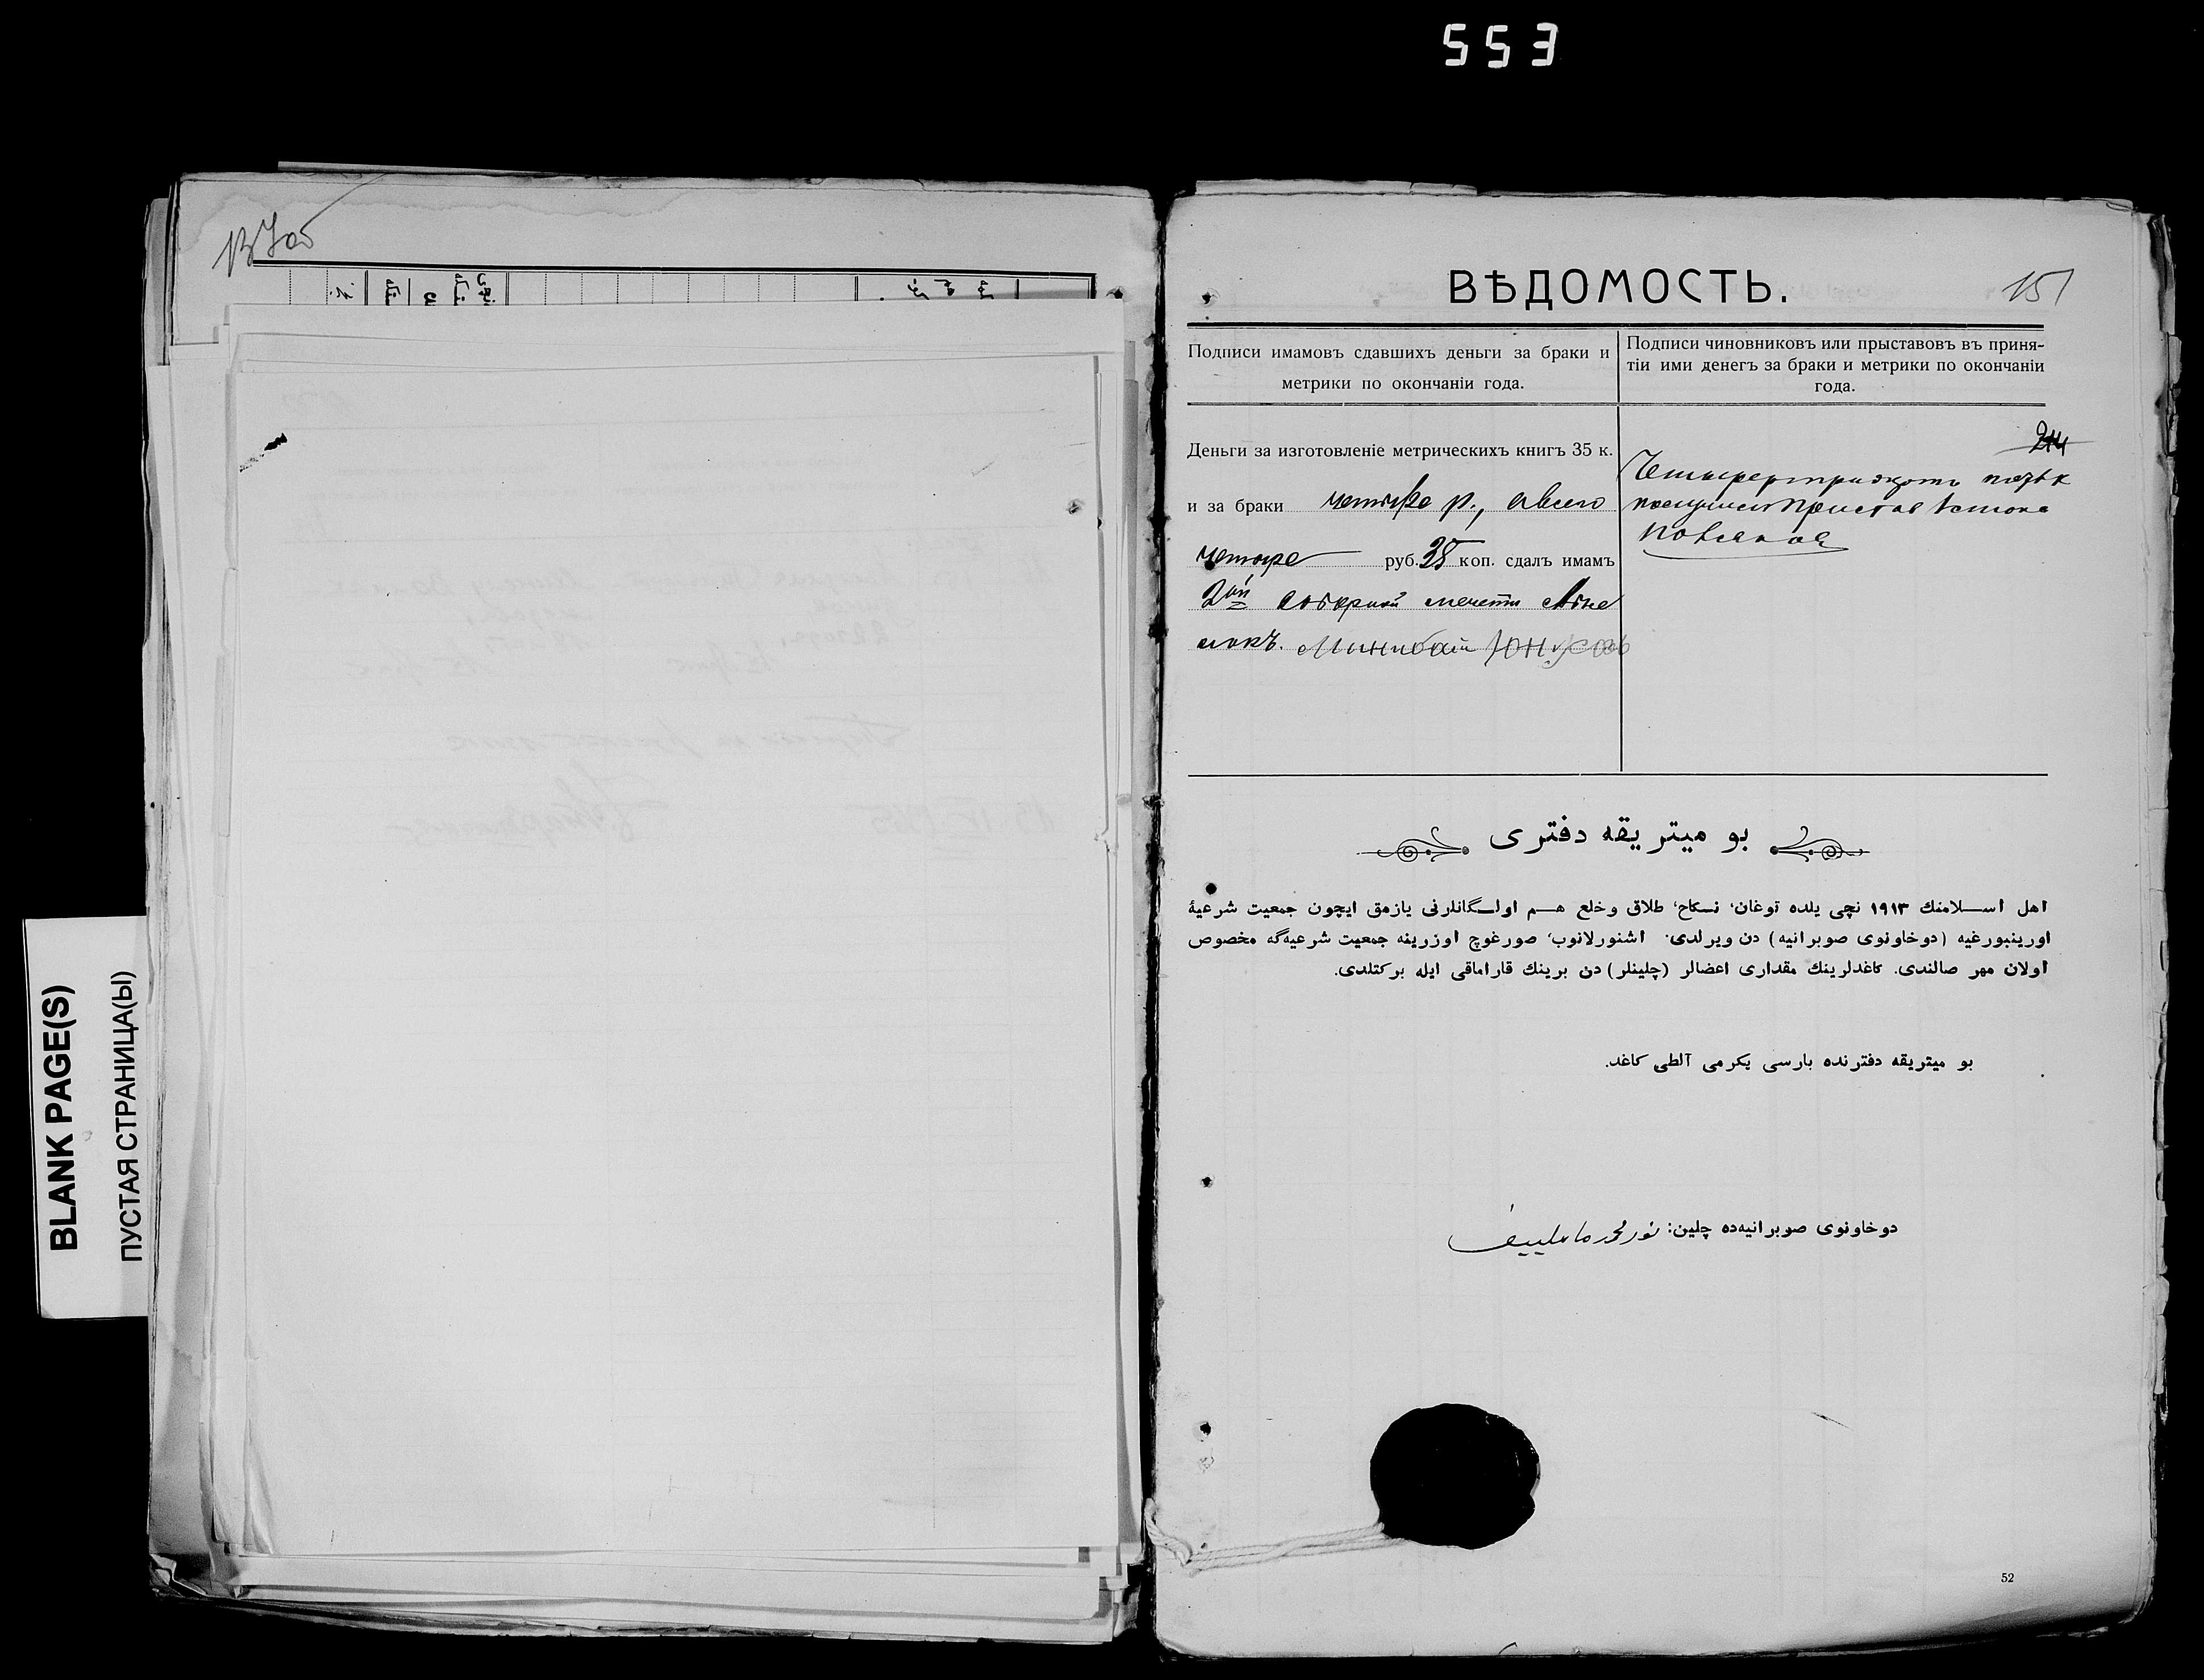 553
BLANK PAGE(S)
ПУСТАЯ СТРАНИЦА(Ы)
ВѢДОМОСТЬ.
151
Подписи имамовъ сдавшихъ деньги за браки и
метрики по окончаніи года.
Подписи чиновниковъ или прыставовъ въ приня-
тіи ими денегъ за браки и метрики по окончаніи
года.
Деньги за изготовленіе метрическихъ книгъ 35 к.
и за браки четыре р., а всего
четыре руб. 35 коп. сдалъ имамъ
2ой соборной мечети
Минибай Юнусовъ
214
Четыре р тридцать пять к
получилъ Приставъ 1 стана
بو ميتريقه دفترى
اهل اسلامنك ١٩١٣ نچى يلده توغان، نكاح، طلاق وخلع هم اولگانلرنى يازمق ايچون جمعيت شرعيۀ
اورينبورغيه (دوخاونوى صوبرانيه) دن ويرلدى. اشنورلانوب، صورغوچ اوزرينه جمعيت شرعيه‌گه مخصوص
اولان مهر صالندى. كاغدلرينك مقدارى اعضالر (چلينلر) دن برينك قاراماقى ايله بركتلدى.
بو ميتريقه دفترنده بارسى يكرمى آلطى كاغد.
دوخاونوى صوبرانيه‌ده چلين: نورمحمد ماملييف
52